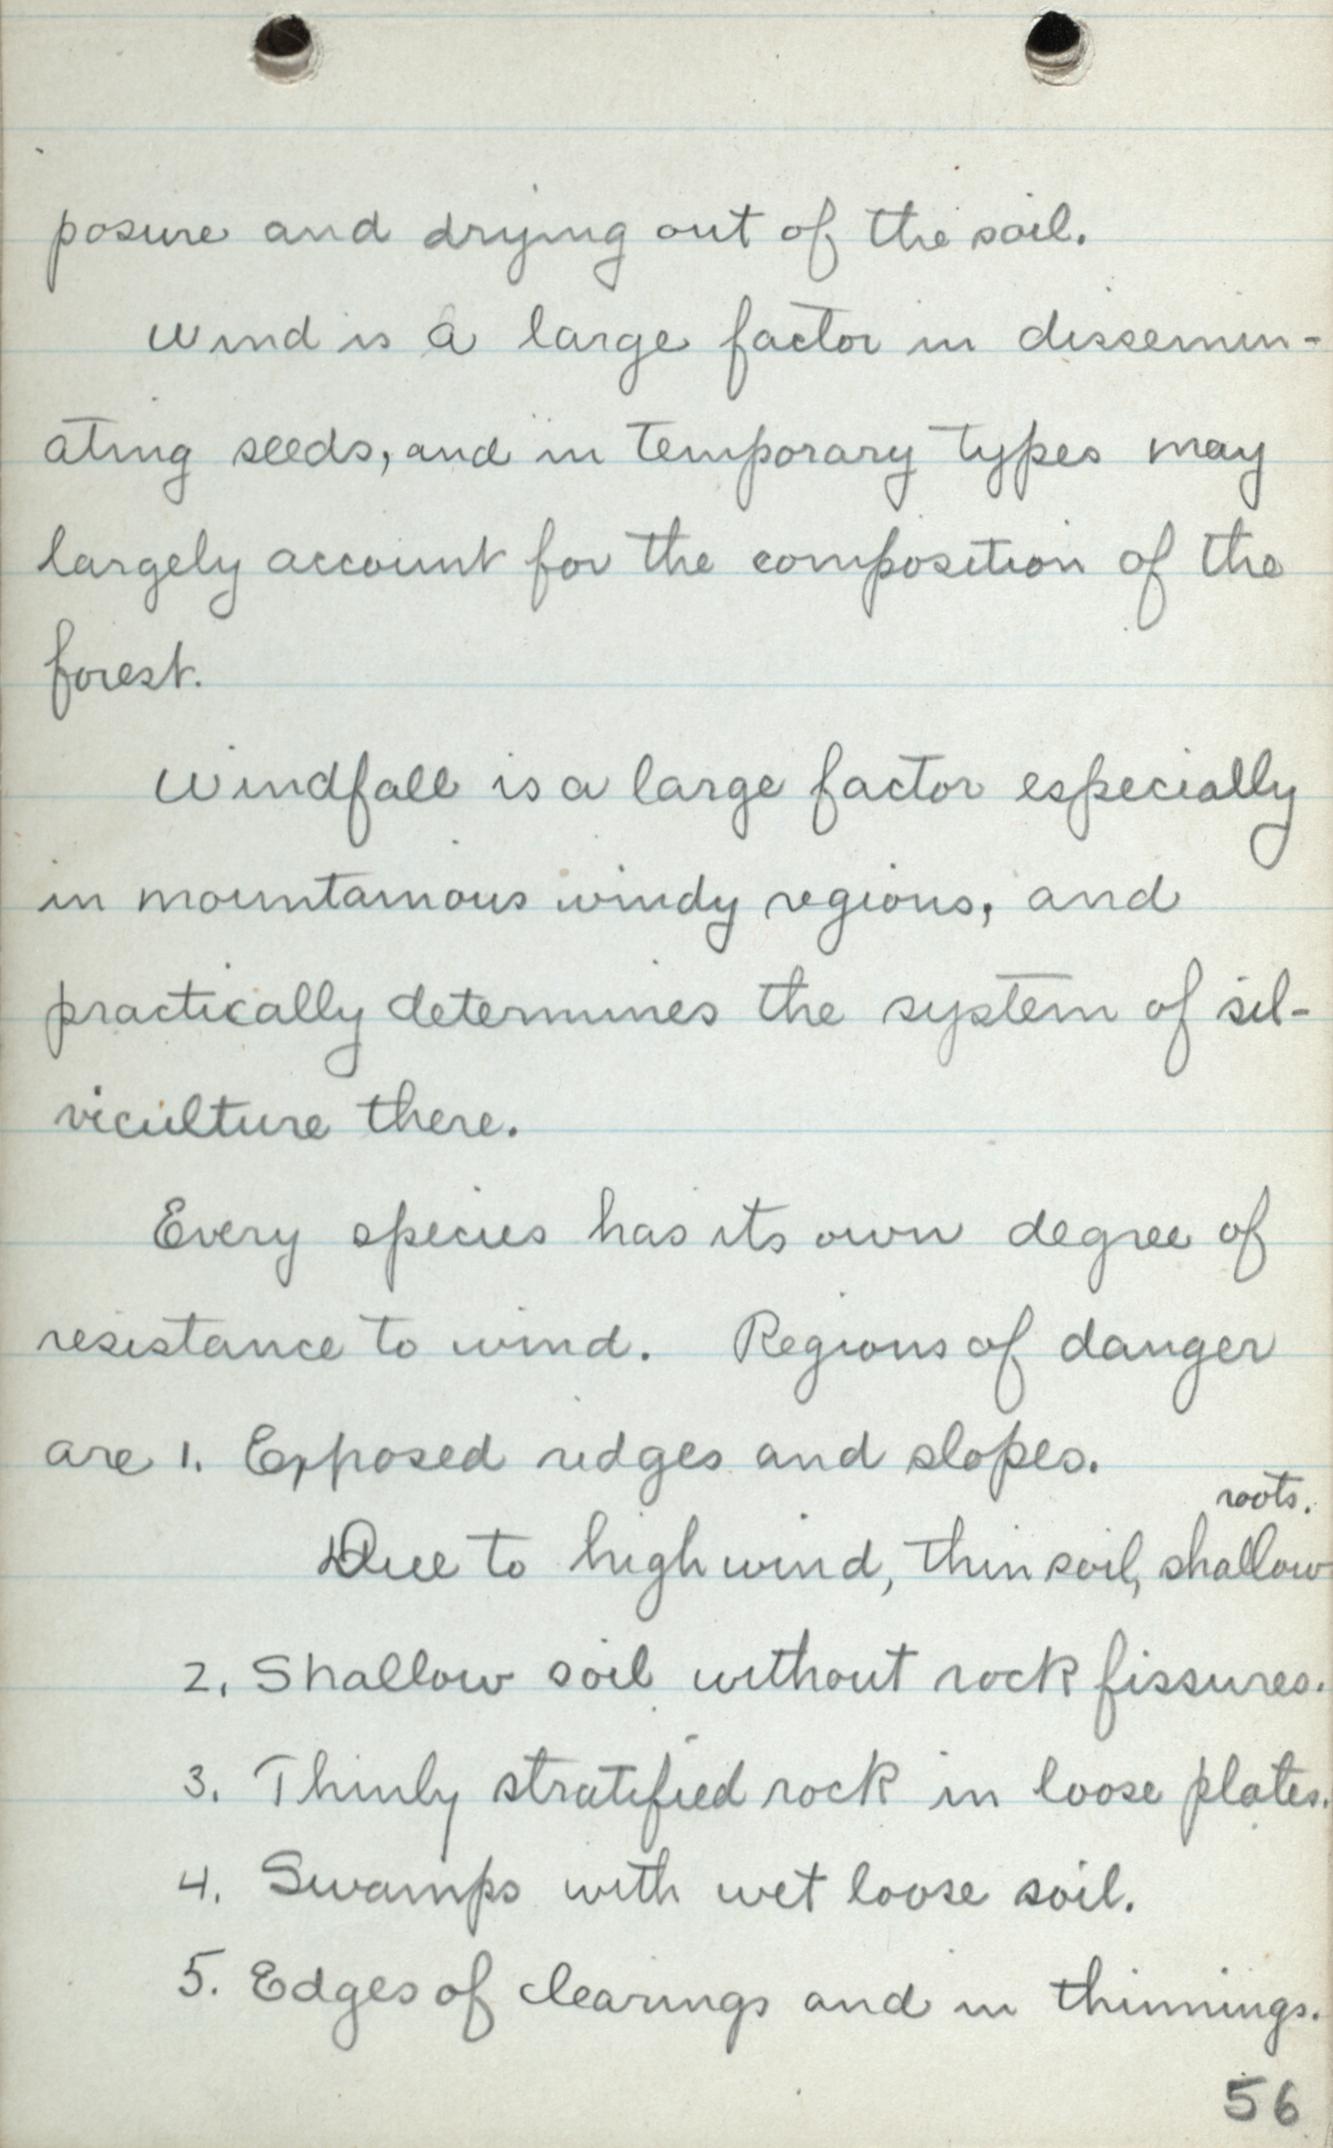 posure and drying out of the soil.
Wind is a large factor in dissemin-
ating seeds, and in temporary types may
largely account for the composition of the
forest.
Windfall is a large factor especially
in mountainous windy regions, and
practically determines the system of sil-
viculture there.
Every species has its own degree of
resistance to wind. Regions of danger
are 1. Exposed ridges and slopes.
roots.
Due to high wind, thin soil, shallow
2. Shallow soil without rock fissures.
3. Thinly stratified rock in loose plates.
4. Swamps with wet loose soil.
5. Edges of clearings and in thinnings.
56